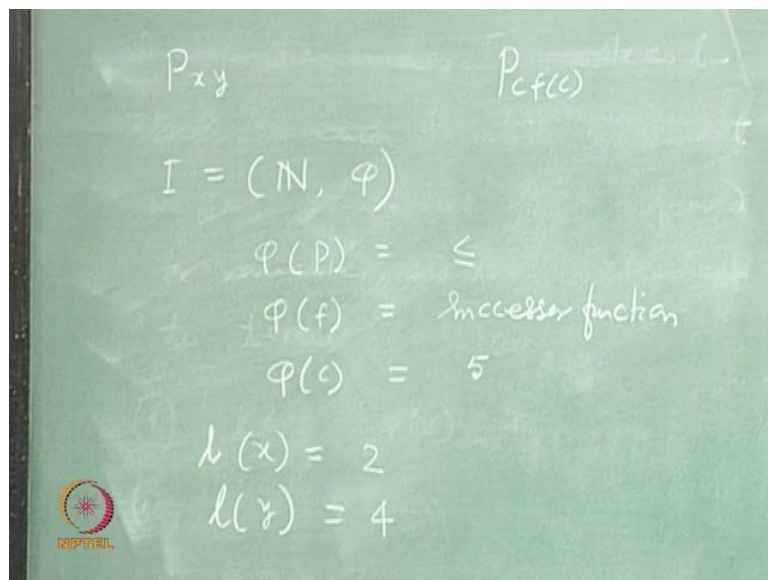 Pxy Pcf(c)
I = (ℕ, φ)
φ(P) = ≤
φ(f) = Successor function
φ(c) = 5
l(x) = 2
l(y) = 4
NPTEL